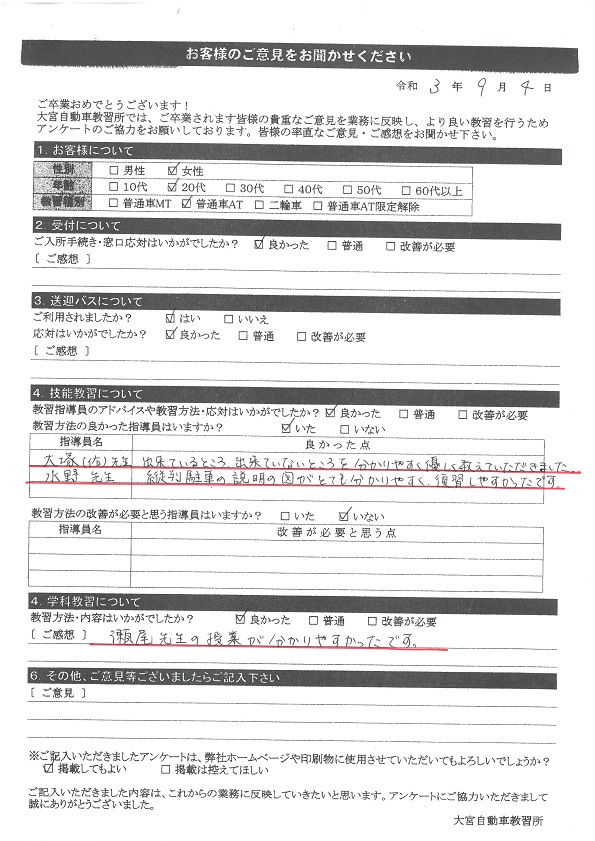 お客様のご意見をお聞かせください
令和 3 年 9 月 4 日
ご卒業おめでとうございます！
大宮自動車教習所では、ご卒業されます皆様の貴重なご意見を業務に反映し、より良い教習を行うため
アンケートのご協力をお願いしております。皆様の率直なご意見・ご感想をお聞かせ下さい。
1. お客様について
性別 □ 男性 ☑ 女性
年齢 □ 10代 ☑ 20代 □ 30代 □ 40代 □ 50代 □ 60代以上
教習種別 □ 普通車MT ☑ 普通車AT □ 二輪車 □ 普通車AT限定解除
2. 受付について
ご入所手続き・窓口応対はいかがでしたか？ ☑ 良かった □ 普通 □ 改善が必要
〔 ご感想 〕
3. 送迎バスについて
ご利用されましたか？ ☑ はい □ いいえ
応対はいかがでしたか？ ☑ 良かった □ 普通 □ 改善が必要
〔 ご感想 〕
4. 技能教習について
教習指導員のアドバイスや教習方法・応対はいかがでしたか？ ☑ 良かった □ 普通 □ 改善が必要
教習方法の良かった指導員はいますか？ ☑ いた □ いない
指導員名 良かった点
大塚(佑)先生 出来ているところ、出来ていないところを分かりやすく優しく教えていただきました。
水野 先生 縦列駐車の説明の図がとても分かりやすく、復習しやすかったです。
教習方法の改善が必要と思う指導員はいますか？ □ いた ☑ いない
指導員名 改善が必要と思う点
4. 学科教習について
教習方法・内容はいかがでしたか？ ☑ 良かった □ 普通 □ 改善が必要
〔 ご感想 〕 瀬尾先生の授業が分かりやすかったです。
6. その他、ご意見等ございましたらご記入下さい
〔 ご意見 〕
※ご記入いただきましたアンケートは、弊社ホームページや印刷物に使用させていただいてもよろしいでしょうか？
☑ 掲載してもよい □ 掲載は控えてほしい
ご記入いただきました内容は、これからの業務に反映していきたいと思います。アンケートにご協力いただきまして
誠にありがとうございました。
大宮自動車教習所